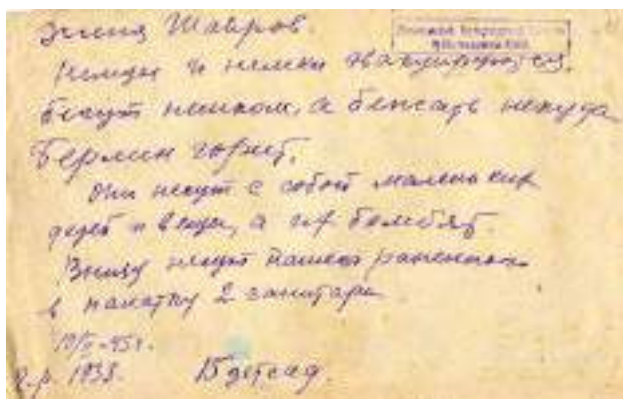 Женя Шавров.
Немцы и немки эвакуируются,
бегут пешком, а бежать некуда
Берлин горит.
Они несут с собой маленьких
детей и вещи, а их бомбят.
Внизу несут нашего раненного
в палатку 2 санитара
г.р. 1938. 15 детсад.